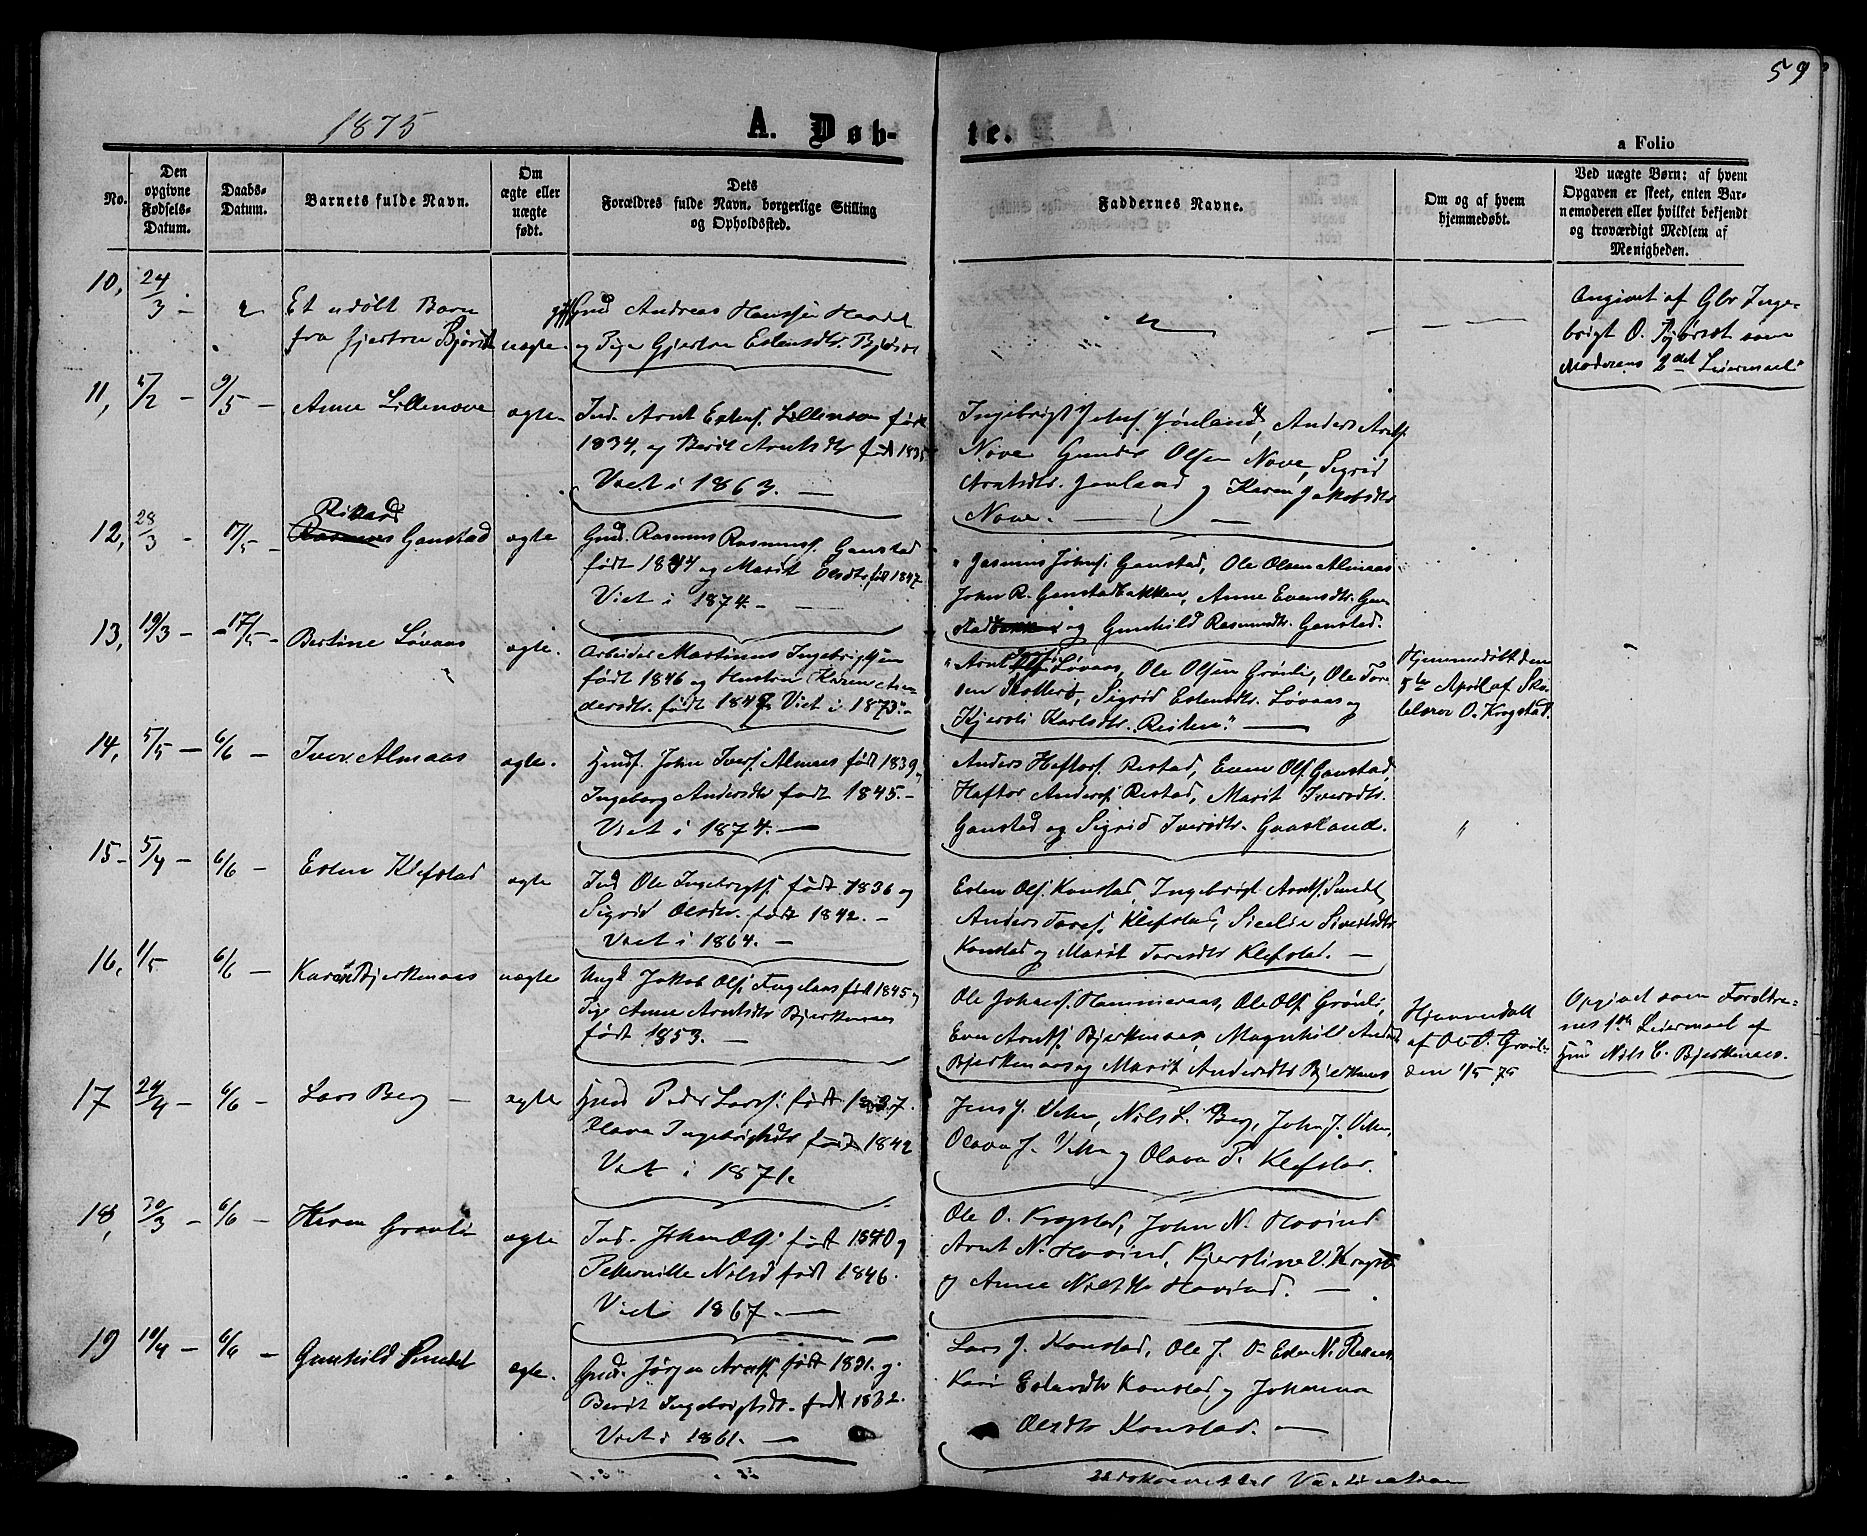 59
1875
A. Døb-
te.
a Folio
No.
Den
opgivne
Fødsels-
Datum.
Daabs-
Datum.
Barnets fulde Navn.
Om
ægte eller
uægte
født.
Dets
Forældres fulde Navn, borgerlige Stilling
og Opholdssted.
Faddernes Navne.
Om og af hvem
hjemmedøbt.
Ved uægte Børn: af hvem
Opgaven er skeet, enten Bar-
nemoderen eller hvilket bekjendt
og troværdigt Medlem af
Menigheden.
10, 24/3 -
Et udøbt Barn
fra
uægte.
Gmd Andreas Hanssen
og Pige Gjertru Estensdtr.
Angivet af Gbr Inge-
brigt O. som
Moderens 2det Leiermaal
11, 5/2 - 9/5 -
Anne Lillenove
ægte
Ind. Arnt Estens. Lillenove født
1834, og Berit Arntsdtr født 1835
Viet i 1863. -
Ingebrigt Johns. Jønland, Anders Arnts.
Nove Gunder Olsen Nove, Sigrid
Arntsdtr. Jønland og Karen Jakobsdtr
Nove. -
12, 28/3 - 17/5 -
Rikard
Rasmus Ganstad
ægte
Gmd. Rasmus Rasmuss. Ganstad
født 1844 og Marit Olsdtr. født 1847
Viet i 1874. -
Rasmus Johns. Ganstad, Ole Olsen Almaas
John R. Ganstadbakken, Anne Evensdtr. Gan
stadbakken og Gunhild Rasmusdtr. Ganstad.
13, 19/3 - 17/5 -
Bertine Løvaas
ægte.
Arbeider Martinus Ingebrigtsen
født 1846 og Hustru Karen An-
dersdtr. født 1849 Viet i 1873. -
Arnt Løvaas, Ole Olsen Grønli, Ole Tore
sen, Sigrid Estensdtr. Løvaas og
Kjersti Karlsdtr.
Hjemmedøbt den
5te April af Sko-
lelærer O. Krogstad.
14, 5/5 - 6/6 -
Iver Almaas
ægte.
John Ivers. Almaas født 1839 og
Ingeborg Andersdtr født 1845. -
Viet i 1874. -
Anders Haftors. Restad, Even Ols. Ganstad,
Haftor Anders. Restad, Marit Iversdtr.
Ganstad og Sigrid Iversdtr. Gaasland.
15 - 5/4 - 6/6 -
Esten Klefstad
ægte
Ind Ole Ingebrigts. født 1836 og
Sigrid Olsdtr. født 1842. -
Viet i 1864. -
Esten Ols. Konstad, Ingebrigt Arnts. Sundt
Anders Tores. Klefstad, Sicelie Sivertsdtr
Konstad og Marit Toresdtr Klefstad. -
16, 1/5 6/6 -
Karen Bjerkenaas
uægte
Ungk Jakob Ols. født 1845 og
Pige Anne Arntsdtr Bjerkenaas
født 1853. -
Ole Johns. Hammernaas, Ole Ols. Grønli,
Even Arnts. Bjerkenaas, Magnhild
Bjerkenaas og Marit Andersdtr Bjerkenaas
Hjemmedøbt
af Ole O. Grønli
den 1/5 75
Opgivet som Foreldre-
nes 1ste Leiermaal af
Gmd Nils C. Bjerkenaas.
17 24/4 - 6/6 -
Lars Berg -
ægte
Gmd Peder Lars. født 1837.
Olava Ingebrigtsdtr født 1842
Viet i 1871.
Jens J. Vehn, Nils L. Berg, John J. Vehn,
Olava J. Vehn og Olava P. Klefstad.
18, 30/3 - 6/6 -
Karen Grønli
ægte
Ind. Johan Ols. født 1840 og
Pethernille Nilsd født 1846.
Viet i 1867. -
Ole O. Krogstad, John N. Hovind
Arnt N. Hovind, Kjerstine O. Krogst.
og Anne Nilsdtr Hovind. -
19 10/4 - 6/6 -
Gunhild Sundet
ægte.
Gmd. Jørgen Arnts. født 1831. og
Berit Ingebrigtsdt. født 1832.
Viet i 1861. -
Lars J. Konstad, Ole J. Esten N.
Kari Estensdtr Konstad og Johanna
Olsdtr Konstad. -